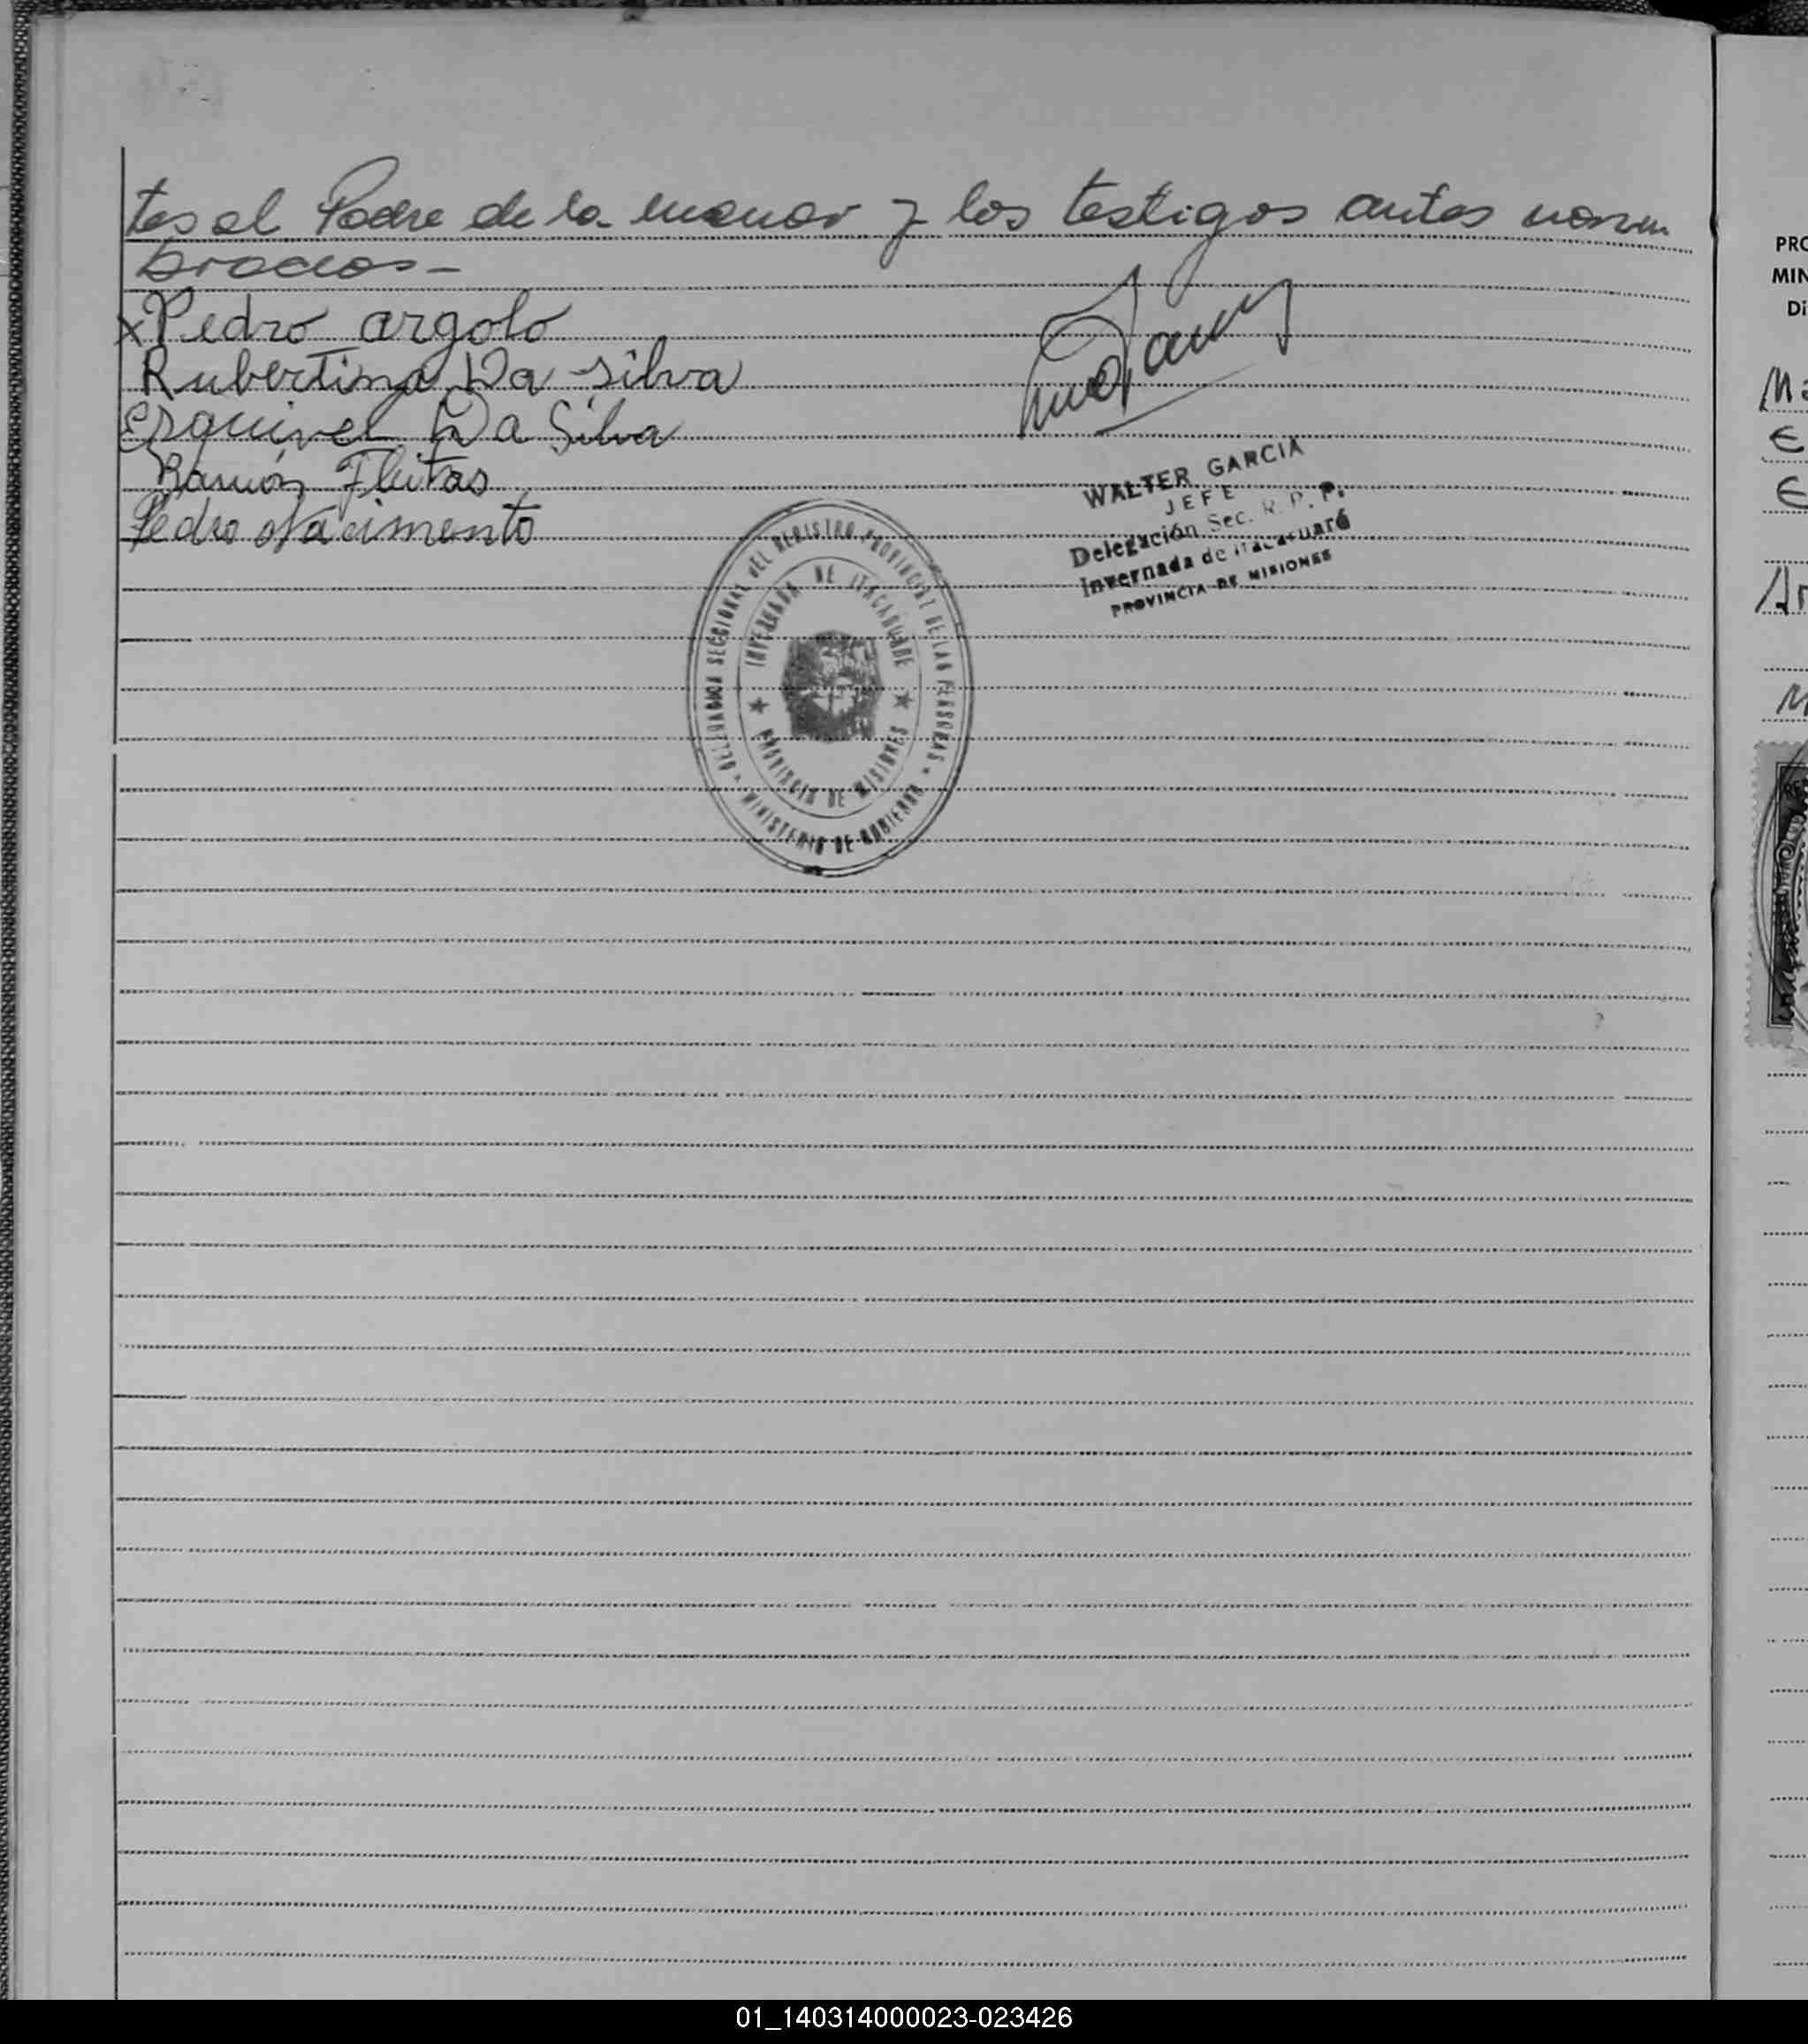 tes el Padre de la menor y los testigos antes nom
brados -
x Pedro argolo
Rubertina Da silva
Esquivel Da Silva
Ramón Fleitas
Pedro Nacimento
WALTER GARCIA
JEFE
Delegación Sec. R. P. P.
Invernada de Itacaruaré
PROVINCIA DE MISIONES
DELEGACION SECCIONAL DEL REGISTRO PROVINCIAL DE LAS PERSONAS
INVERNADA DE ITACARUARE
PROVINCIA DE MISIONES
MINISTERIO DE GOBIERNO
PRO
MIN
Di
E
E
01_140314000023-023426